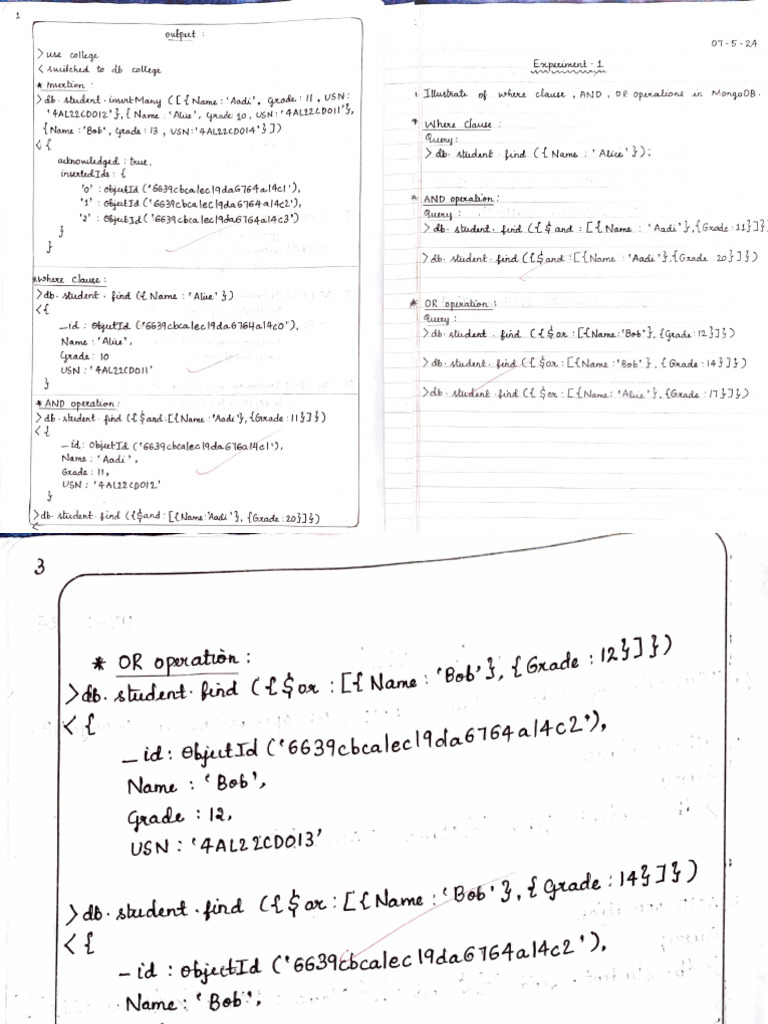 1
output :
> use college
< switched to db college
* Insertion :
> db. student. insertMany ([{Name: 'Aadi', Grade: 11, USN:
'4AL22CD012'},{Name: 'Alice', Grade: 10, USN: '4AL22CD011'},
{Name: 'Bob', Grade: 13, USN: '4AL22CD014'}])
< {
acknowledged : true,
insertedIds : {
'0' : ObjectId ('6639cbca1ec19da6764a14c1'),
'1' : ObjectId ('6639cbca1ec19da6764a14c2'),
'2' : ObjectId ('6639cbca1ec19da6764a14c3')
}
}
* Where Clause :
> db. student. find ({Name : 'Alice'})
< {
_id : ObjectId ('6639cbca1ec19da6764a14c0'),
Name : 'Alice',
Grade : 10
USN : '4AL22CD011'
}
* AND operation :
> db. student. find ({$and:[{Name: 'Aadi'},{Grade: 11}]})
< {
_id : ObjectId ('6639cbca1ec19da676a14c1'),
Name : 'Aadi',
Grade : 11,
USN : '4AL22CD012'
}
> db. student. find ({$and:[{Name: 'Aadi'},{Grade: 20}]})
<
07-5-24
Experiment - 1
1. Illustrate of where clause, AND, OR operations in MongoDB.
* Where Clause :
Query :
> db. student. find ({Name : 'Alice'});
* AND operation :
Query :
> db. student. find ({$and : [{Name : 'Aadi'},{Grade: 11}]}
> db. student. find ({$and :[{Name : 'Aadi'},{Grade 20}]})
* OR operation :
Query :
> db. student. find ({$or : [{Name: 'Bob'}, {Grade: 12}]})
> db. student. find ({$or : [{Name : 'Bob'}, {Grade : 14}]})
> db. student. find ({$or : [{Name : 'Alice'}, {Grade: 17}]})
3
* OR operation :
> db. student. find ({$or : [{Name : 'Bob'}, {Grade : 12}]})
< {
_id : ObjectId ('6639cbca1ec19da6764a14c2'),
Name : 'Bob',
Grade : 12,
USN : '4AL22CD013'
> db. student. find ({$or : [{Name : 'Bob'}, {Grade : 14}]})
< {
_id : ObjectId ('6639cbca1ec19da6764a14c2'),
Name : 'Bob',